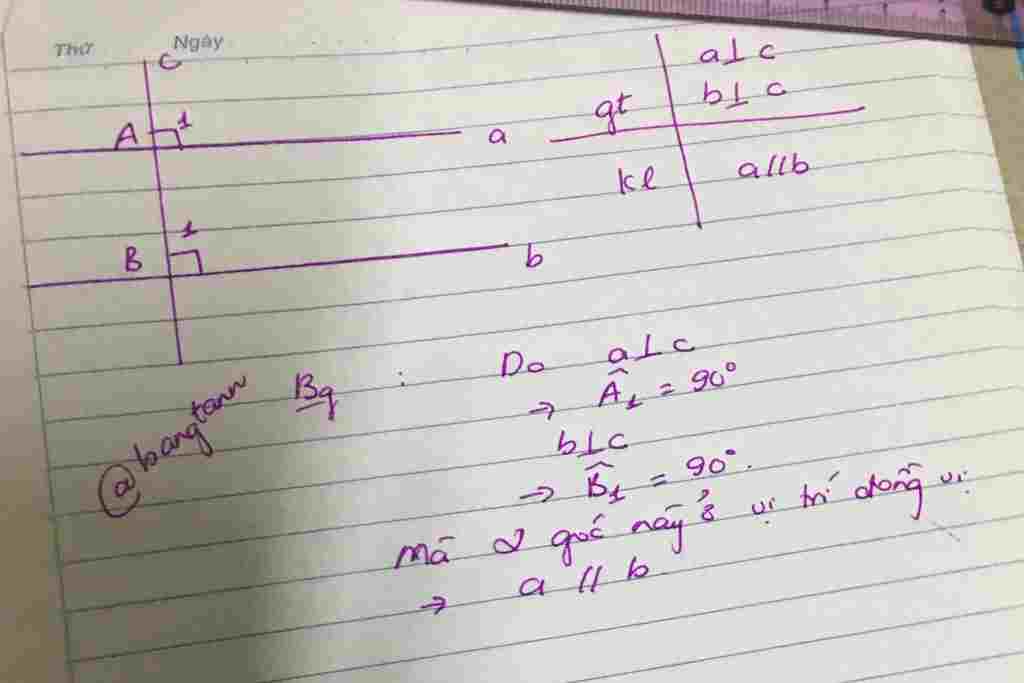 Thứ Ngày
c
A 1 a
B 1 b
gt a⊥c
b⊥c
kl a//b
@bangtanw
Bg : Do a⊥c
→ Â₁ = 90°
b⊥c
→ B̂₁ = 90°.
Mà 2 góc này ở vị trí đồng vị
→ a // b